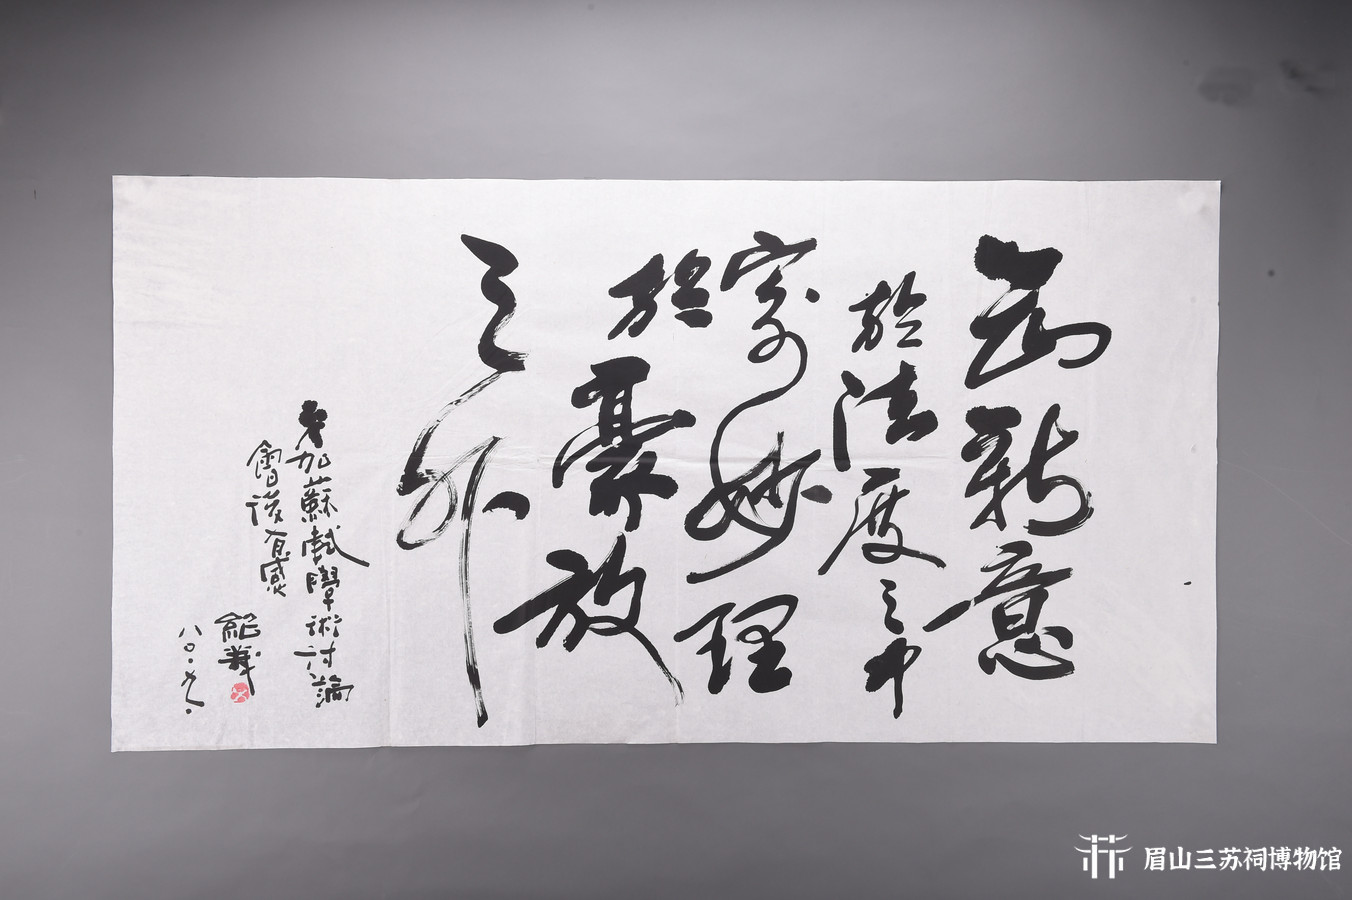 出新意
於法度之中
寄妙理
於豪放
之外
參加蘇軾學術討論
會後有感
紹義
八〇·九·
眉山三苏祠博物馆